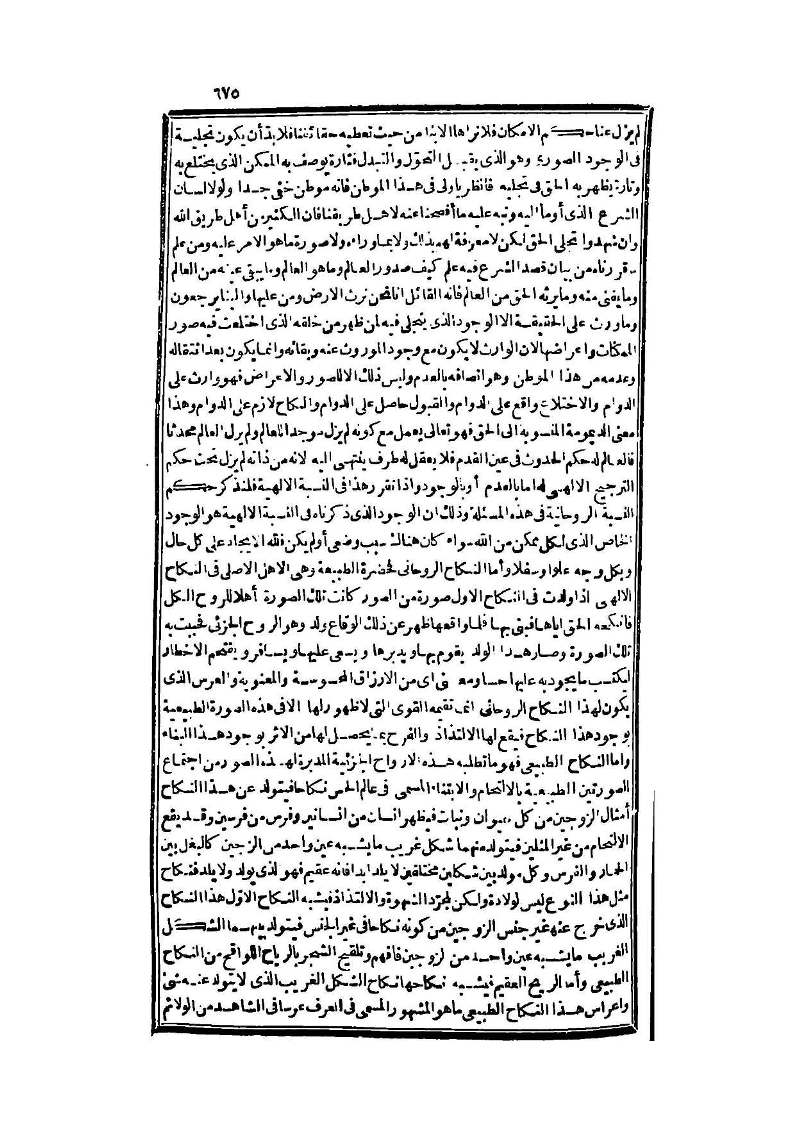 ٦٧٥
لم يزل عنا حكم الامكان فلا نراها الابنا من حيث تعطيه حقائقنا فلا بد أن يكون تجليه
فى الوجود الصورى وهو الذى يقبل التحول والتبدل فتارة يوصف به الممكن الذى يختلع به
وتارة يظهر به الحق فى تجليه فانظر ياولى فى هذا الموطن فانه موطن خفى جدا ولولا لسان
الشرع الذى أومأ اليه ونبه عليه ما أفصحنا عنه لاهل طريقنا فان الكثير من أهل طريق الله
وان شهدوا تجلى الحق لكن لا معرفة لهم بذلك ولا بما رأوه ولا صورة ما هو الامر عليه ومن علم
ما قررناه من بيان قصد الشرع فيه علم كيف صدور العالم وما هو العالم وما يبقى عينه من العالم
وما يفنى منه وما يرثه الحق من العالم فانه القائل انا نحن نرث الارض ومن عليها والينا يرجعون
وما ورث على الحقيقة الا الوجود الذى يتجلى فيه لمن ظهر من خلقه الذى اختلعت فيه صور
الممكنات واعراضها لان الوارث لا يكون مع وجود الموروث عنه وبقائه وانما يكون بعد انتقاله
وعدمه من هذا الموطن وهو اتصافه بالعدم وليس ذلك الا للصور والاعراض فهو وارث على
الدوام والاختلاع واقع على الدوام والقبول حاصل على الدوام والنكاح لازم على الدوام وهذا
معنى الديمومة المنسوبة الى الحق فهو تعالى يعمل مع كونه لم يزل موجدا للعالم ولم يزل العالم محدثا
فالعالم له حكم الحدوث فى عين القدم فلا يعقل له طرف ينتهى اليه لانه من ذاته لم يزل تحت حكم
الترجيح الالهى له اما بالعدم أو بالوجود واذا تقرر هذا فى النسبة الالهية فلنذكر حكم
النسبة الروحانية فى هذه المسئلة وذلك ان الوجود الذى ذكرناه فى النسبة الالهية هو الوجود
الخاص الذى لكل ممكن من الله سواء كان هنالك سبب وضعى أولم يكن فلله الايجاد على كل حال
وبكل وجه علوا وسفلا وأما النكاح الروحانى فحضرة الطبيعة وهى الاهل الاصلى فى النكاح
الالهى اذا ولدت فى النكاح الاول صورة من الصور كانت تلك الصورة أهلا للروح الكل
فانكحه الحق اياها فبنى بها فلما واقعها ظهر عن ذلك الوقاع ولد وهو الروح الجزئى فحييت به
تلك الصورة وصار هذا الولد يقوم بها ويدبرها ويسعى عليها ويسافر ويقتحم الاخطار
ليكتسب ما يجود به عليها حسا ومعنى أى من الارزاق المحسوسة والمعنوية والعرس الذى
يكون لهذا النكاح الروحانى انما تقيمه القوى التى لا ظهور لها الا فى هذه الصورة الطبيعية
بوجود هذا النكاح فيقع لها الالتذاذ والفرح بما يحصل لها من الاثر بوجود هذا البناء
وأما النكاح الطبيعى فهو ما تطلبه هذه الارواح الجزئية المدبرة لهذه الصور من اجتماع
الصورتين الطبيعية بالالتحام والابتناء المسمى فى عالم الحس نكاحا فيتولد عن هذا النكاح
أمثال الزوجين من كل حيوان ونبات فيظهر انسان من انسانين وفرس من فرسين وقد يقع
الالتحام من غير المثلين فيتولد منهما شكل غريب ما يشبه عين واحد من الزوجين كالبغل بين
الحمار والفرس وكل مولد بين شكلين مختلفين لا يلد ابدا فانه عقيم فهو الذى يولد ولا يلد فنكاح
مثل هذا النوع ليس لولادة ولكن لمجرد الشهوة والالتذاذ فيشبه النكاح الاول هذا النكاح
الذى خرج عنه غير جنس الزوجين من كونه نكاحا فى غير الجنس فيتولد بينهما الشكل
الغريب ما يشبه عين واحد من الزوجين فافهم وتلقيح الشجر بالرياح اللواقح من النكاح
الطبيعى وأما الريح العقيم فيشبه نكاحها نكاح الشكل الغريب الذى لا يتولد عنه شئ
واعراس هذا النكاح الطبيعى ما هو المشهور المسمى فى العرف عرسا فى الشاهد من الولائم